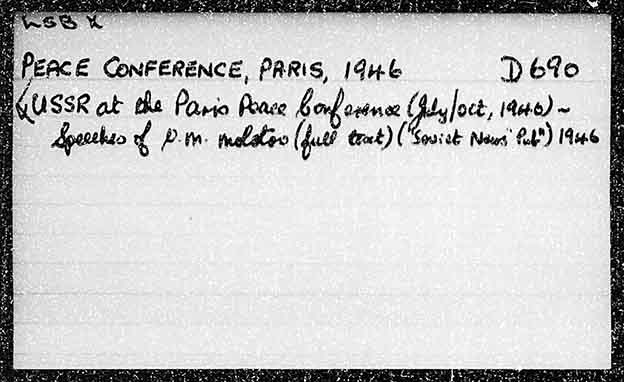 LSB X
PEACE CONFERENCE, PARIS, 1946 D690
USSR at the Paris Peace Conference (July/Oct, 1946) ~
Speeches of V.M. Molotov (full text) ("Soviet News" Pub") 1946